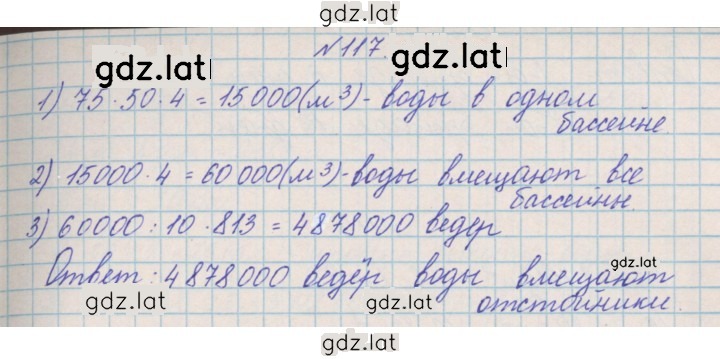 gdz.lat
№117.
gdz.lat
1) 75·50·4 = 15000(м³)- воды в одном
бассейне.
2) 15000·4 = 60000(м³)-воды вмещают все
бассейны
3) 60000:10·813 = 4878000 ведер
gdz.lat
Ответ: 4878000 ведёр воды вмещают
gdz.lat gdz.lat отстойники.
gdz.lat